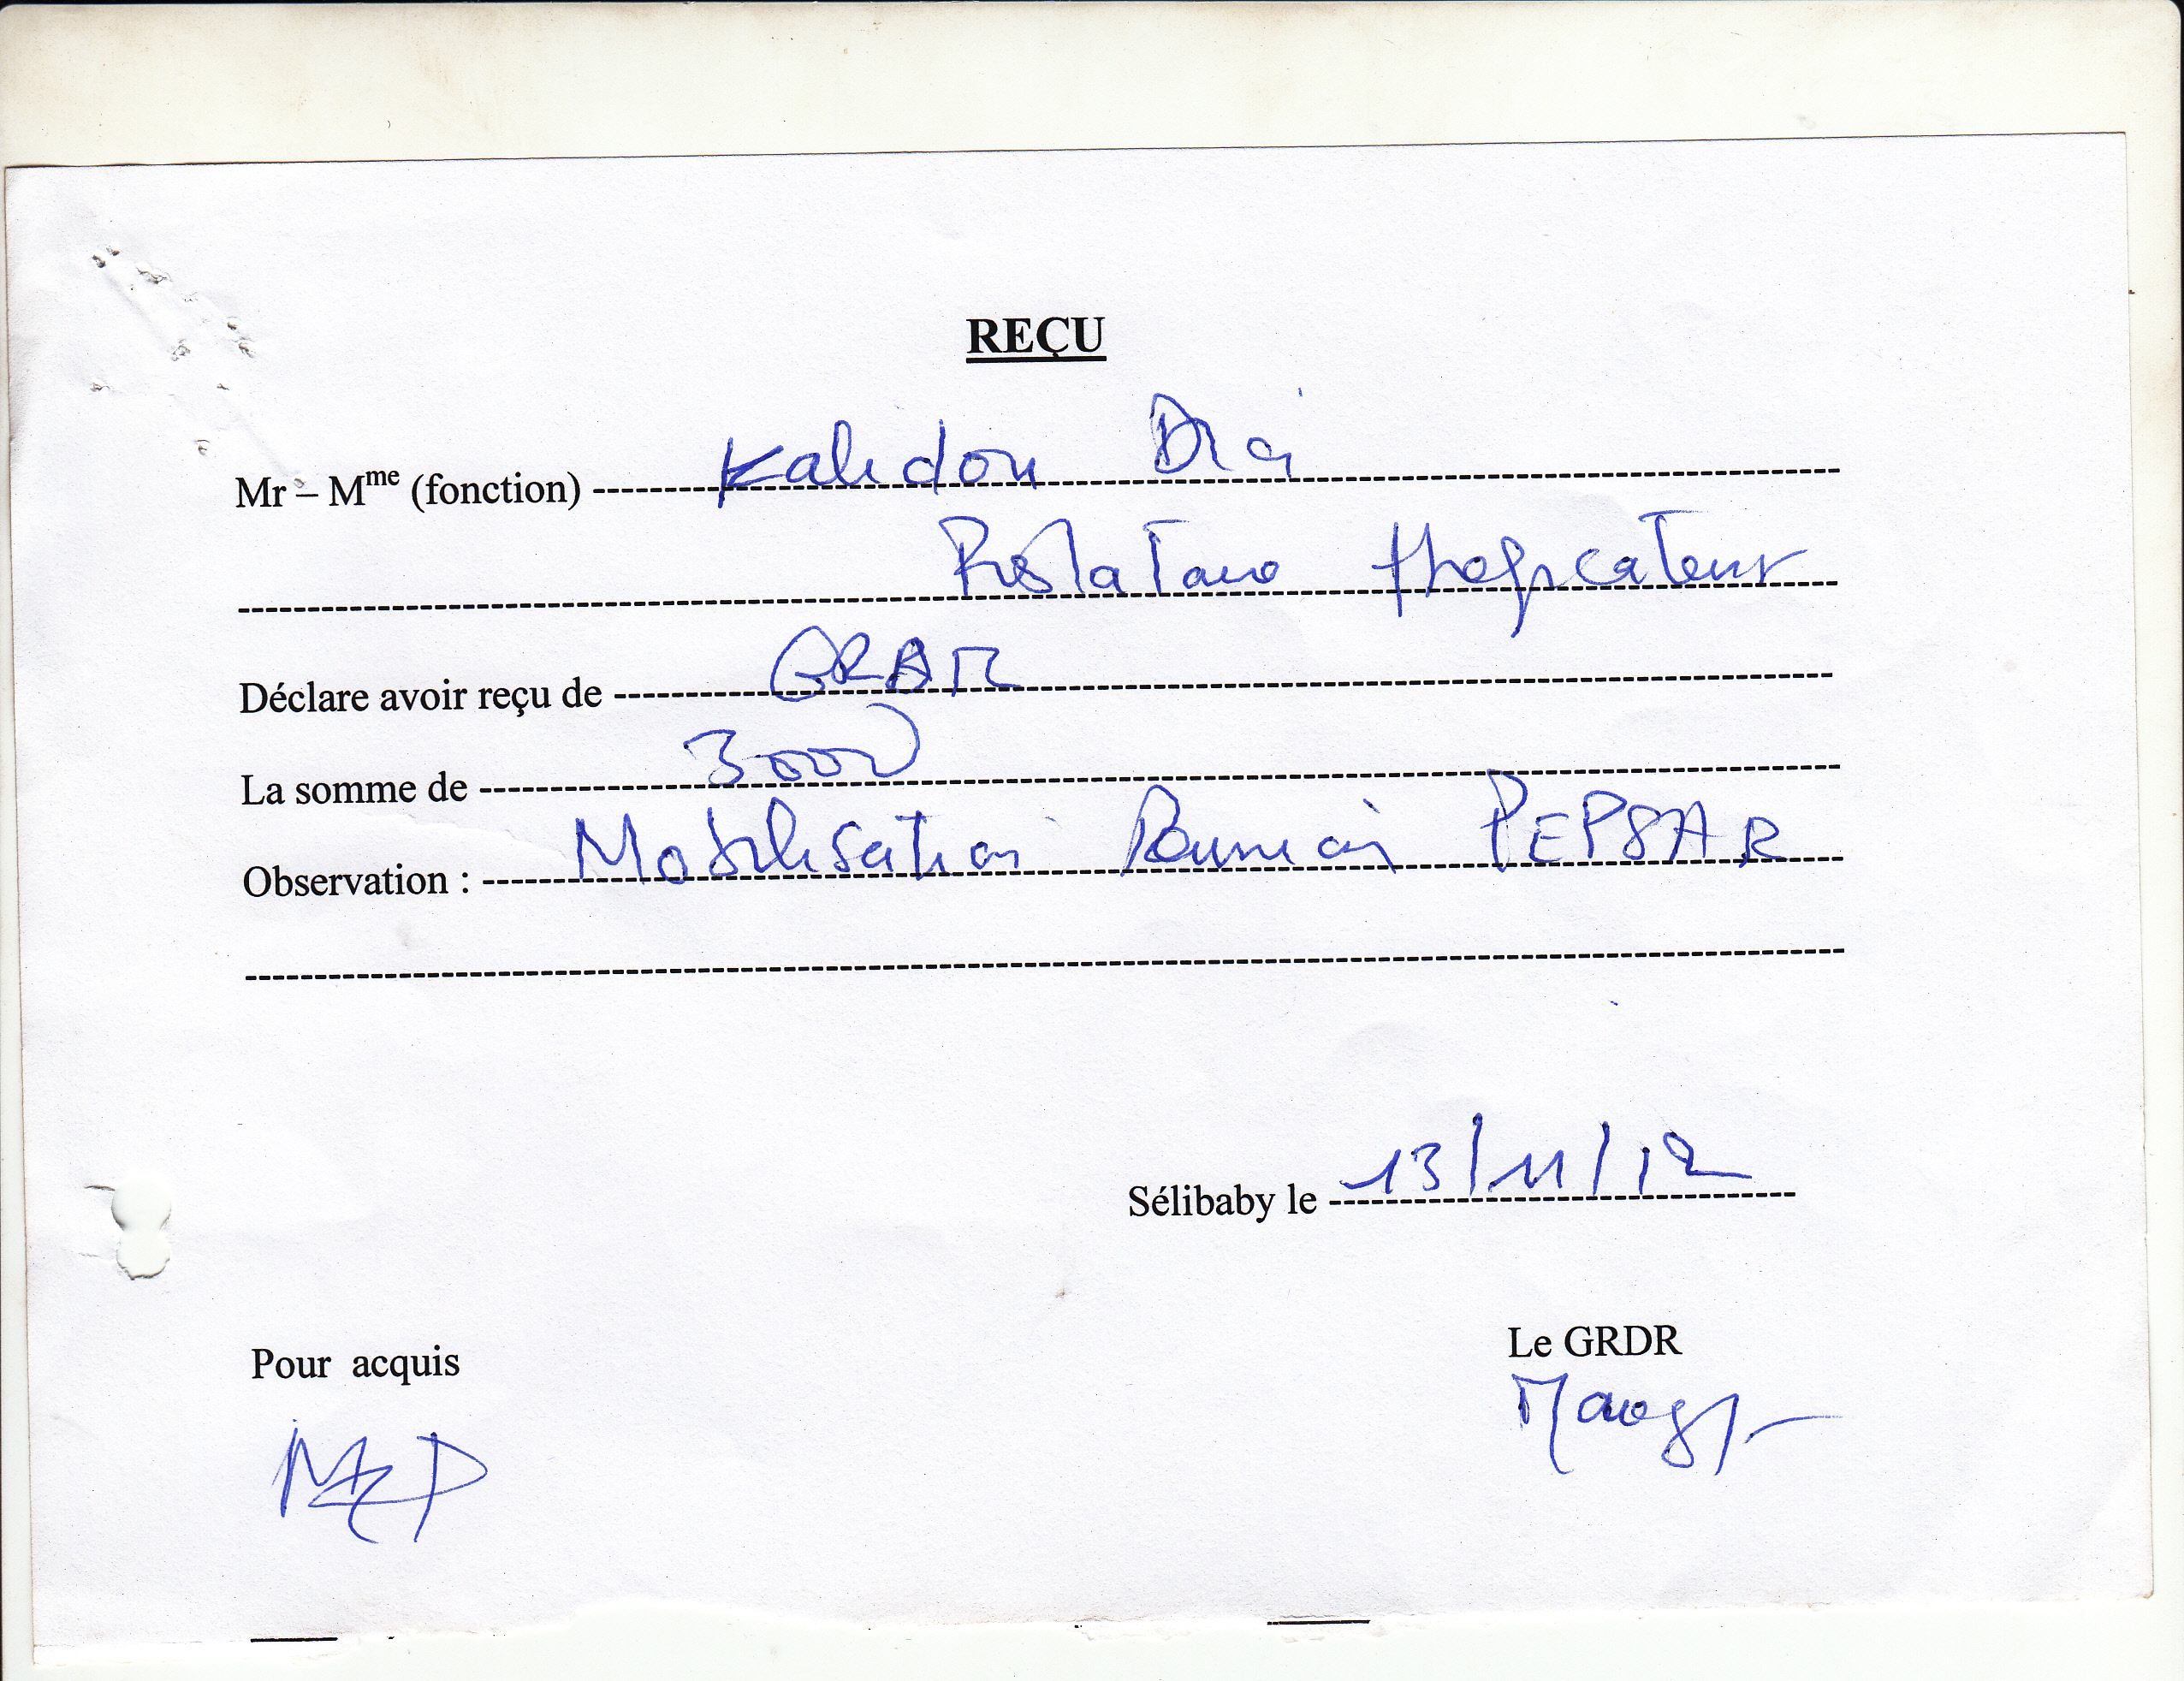 REÇU
Mr – Mme (fonction) Kalidou Dia
Déclare avoir reçu de GRDR
La somme de 3000
Observation : Mobilisation Reunion PEPSAR
Sélibaby le 13/11/12
Pour acquis
Le GRDR